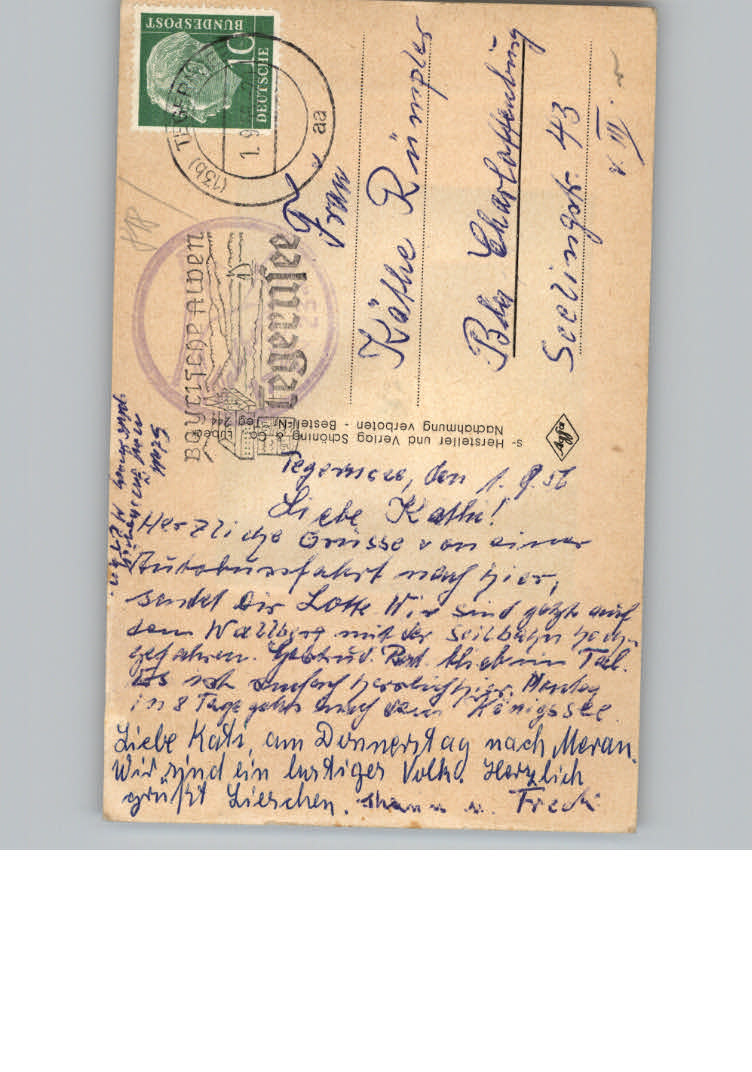 DEUTSCHE
BUNDESPOST
10
(13b) TEGERNSEE
1. 9.
aa
BAYRISCHE ALPEN
Tegernsee
Frau
Käthe Rümpler
Bln Charlottenburg
Seelingstr. 43
v. III.
Hersteller und Verlag Schöning & Co., Lübeck
Nachahmung verboten - Bestell-Nr. Teg. 244
Tegernsee, den 1.9.56
Liebe Käthe!
Herzliche Grüsse von einer
Autobusfahrt nach hier,
sendet Dir Lotte Wir sind jetzt auf
dem Wallberg mit der Seilbahn hoch
gefahren. blieb im Tal.
Es ist einfach herrlich hier. Montag
in 8 Tage gehts nach dem Königssee.
Liebe Kate, am Donnerstag nach Meran.
Wir sind ein lustiges Volk. Herzlich
grüßt Lieschen.